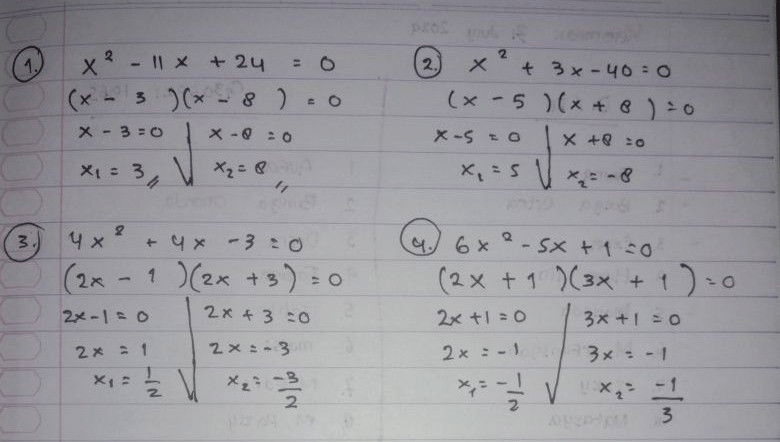 1. x² - 11x + 24 = 0
(x - 3)(x - 8) = 0
x - 3 = 0 ∨ x - 8 = 0
x₁ = 3 x₂ = 8
2. x² + 3x - 40 = 0
(x - 5)(x + 8) = 0
x - 5 = 0 ∨ x + 8 = 0
x₁ = 5 x₂ = -8
3. 4x² + 4x - 3 = 0
(2x - 1)(2x + 3) = 0
2x - 1 = 0 ∨ 2x + 3 = 0
2x = 1 2x = -3
x₁ = 1/2 x₂ = -3/2
4. 6x² - 5x + 1 = 0
(2x + 1)(3x + 1) = 0
2x + 1 = 0 ∨ 3x + 1 = 0
2x = -1 3x = -1
x₁ = -1/2 x₂ = -1/3